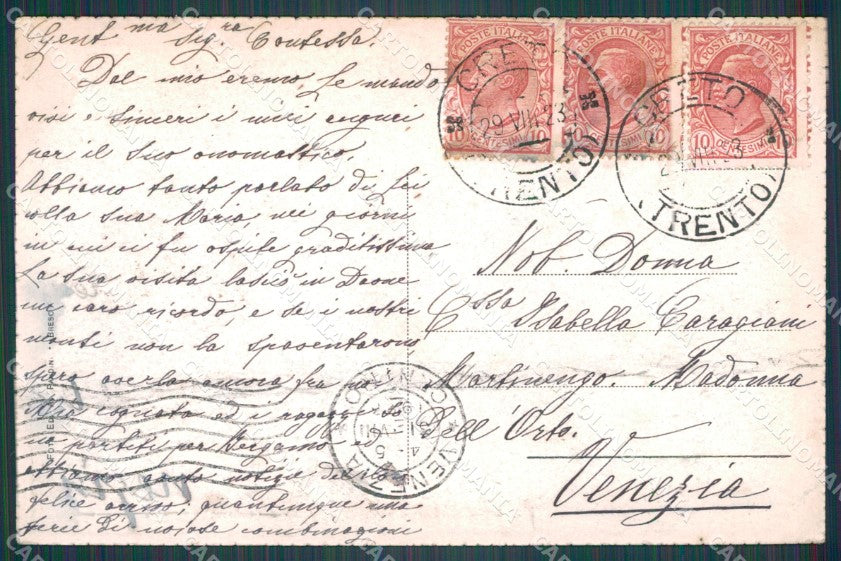 Gent.ma Sig.ra Contessa.
Dal mio eremo, Le mando
vivi e sinceri i miei auguri
per il Suo onomastico.
Abbiamo tanto parlato di Lei
colla Sua Maria, nei giorni
in cui ci fu ospite graditissima
La sua visita lasciò in Daone
un caro ricordo, e se i nostri
monti non la spaventarono
spero averla ancora fra noi
Mia cognata ed i ragazzi
partiti per Bergamo
notizie del
felice arrivo, quantunque una
serie di noiose combinazioni
POSTE ITALIANE
10 CENTESIMI 10
POSTE ITALIANE
POSTE ITALIANE
10 CENTESIMI
CRETO
29 VIII 23
(TRENTO)
CRETO
(TRENTO)
Nob. Donna
C.ssa Isabella Caragiani
Martinengo. Madonna
Dell'Orto.
Venezia
VENEZIA
CARTOLINOMANIA